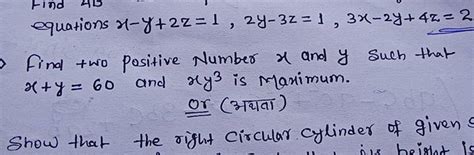 Find AB
equations x-y+2z=1, 2y-3z=1, 3x-2y+4z=2
Find two positive Number x and y such that
x+y=60 and xy³ is Maximum.
Or (अथवा)
Show that the right Circular Cylinder of given
height